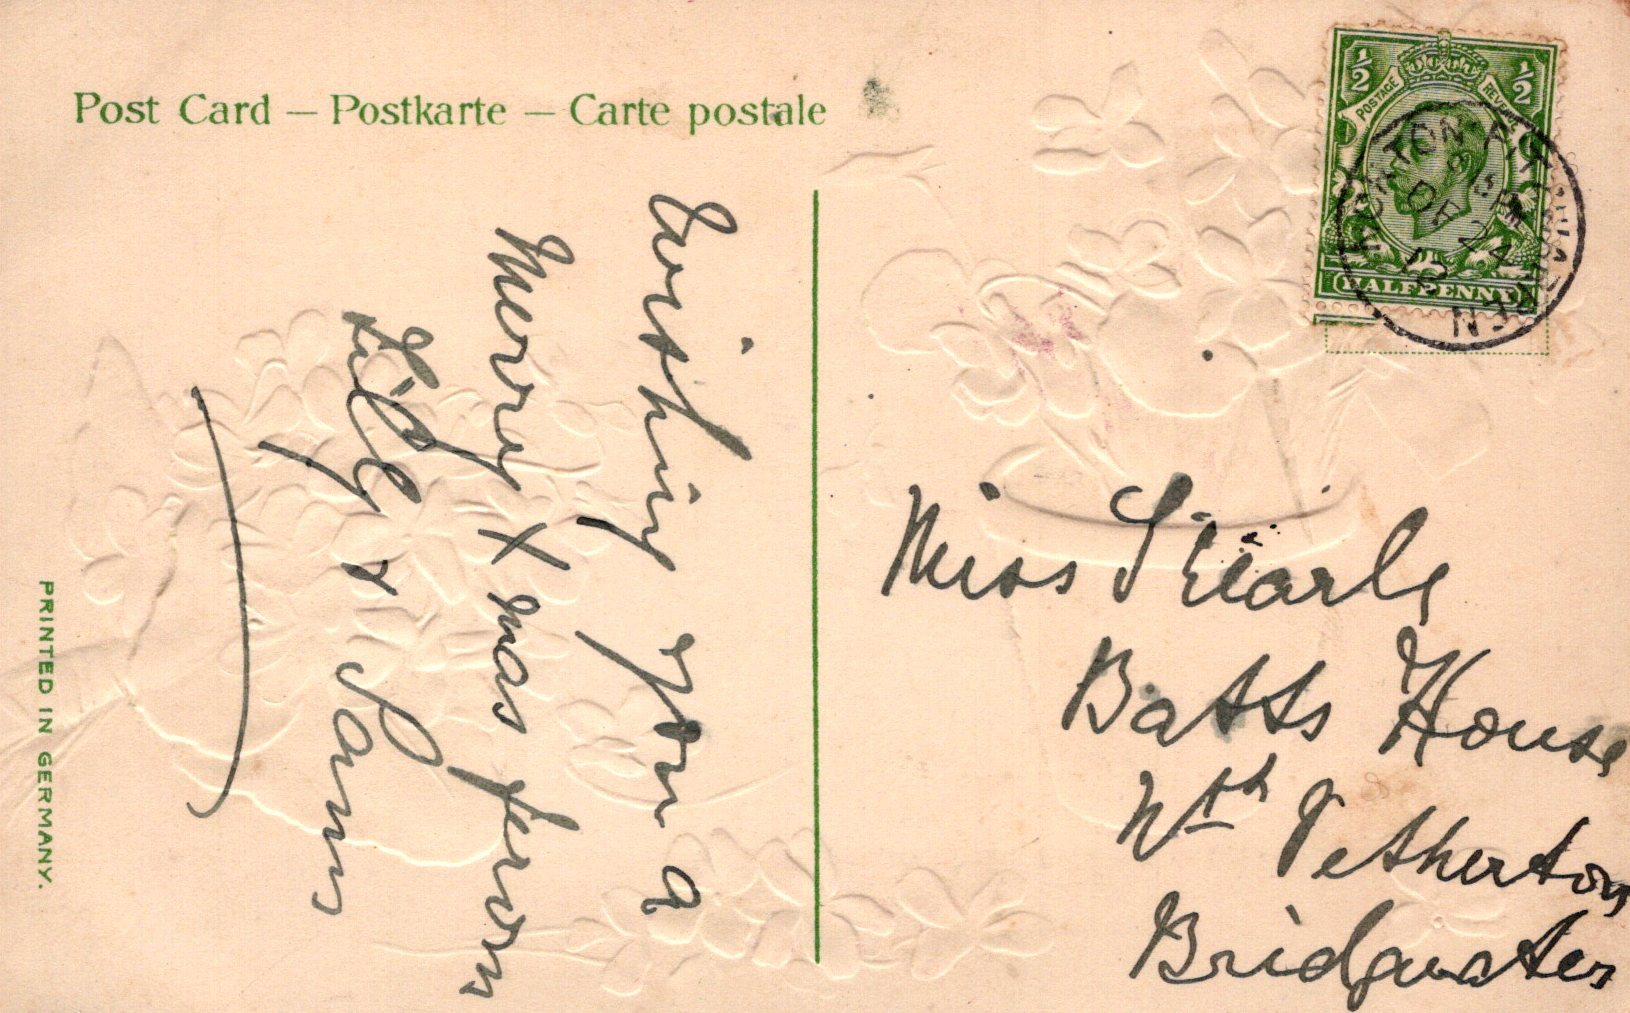 Post Card — Postkarte — Carte postale
½ ½
POSTAGE REVENUE
HALFPENNY
DE 24
12
wishing you a
Merry Xmas from
Lily & Sam
Miss Searle
Batts House
Nth Petherton
Bridgwater
PRINTED IN GERMANY.